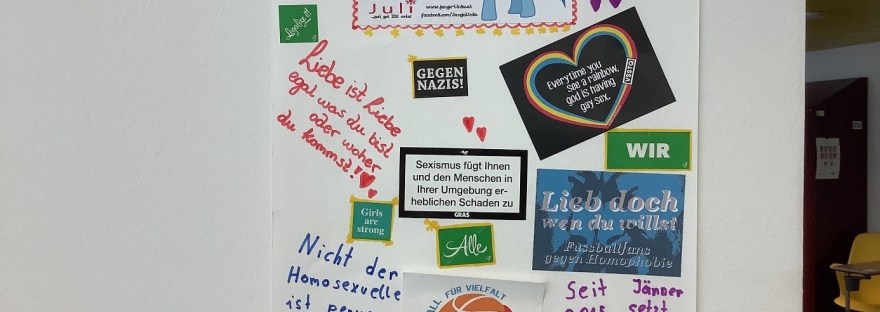 Juli
www.junge-linke.at
legalize it!
Liebe ist Liebe
egal was du bist
oder woher
du kommst!
GEGEN
NAZIS!
Everytime you
see a rainbow,
god is having
gay sex.
VSSTÖ
WIR
Sexismus fügt Ihnen
und den Menschen in
Ihrer Umgebung er-
heblichen Schaden zu
GRAS
Girls
are
strong
Alle
Lieb doch
wen du willst
Fussballfans
gegen Homophobie
Nicht der
Homosexuelle
ist
ALL FÜR VIELFALT
Seit Jänner
setzt